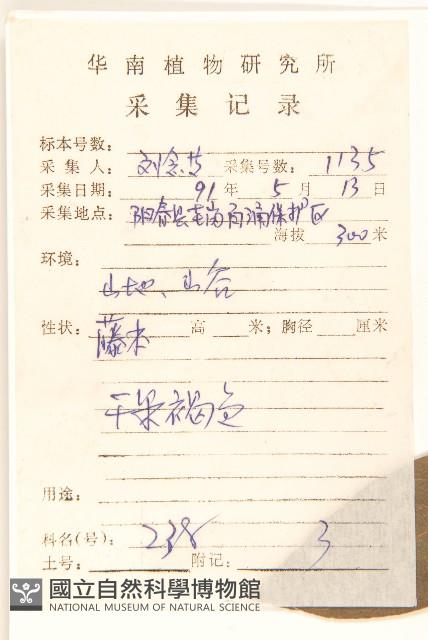 华南植物研究所
采集记录
标本号数:
采集人: 刘念 采集号数: 1135
采集日期: 91年5月13日
采集地点: 阳春县 保护区
海拔 300米
环境:
山地、山谷
性状: 藤本 高 米; 胸径 厘米
干果褐色
用途:
科名(号): 238
土号: 附记: 3
國立自然科學博物館
NATIONAL MUSEUM OF NATURAL SCIENCE